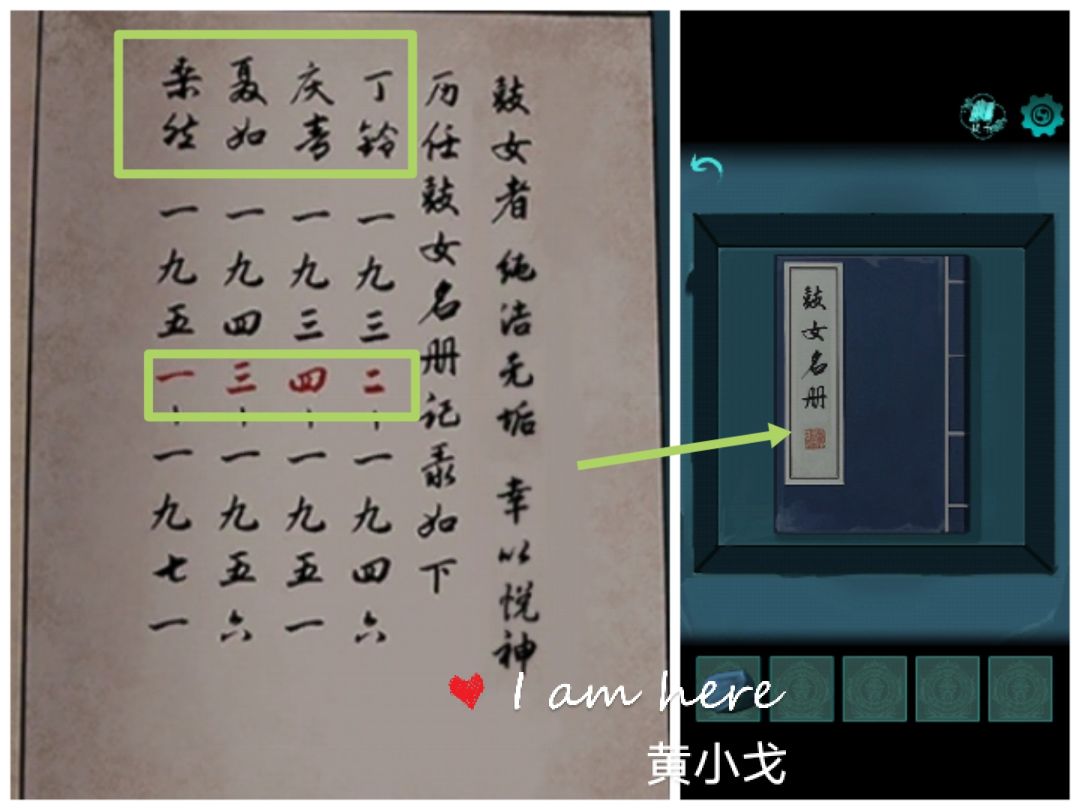 鼓女者 纯洁无垢 幸以悦神
历任鼓女名册记录如下
丁铃 一九三二-一九四六
庆 一九三四-一九五一
夏如 一九四三-一九五六
桑然 一九五一-一九七一
鼓女名册
I am here
黄小戈